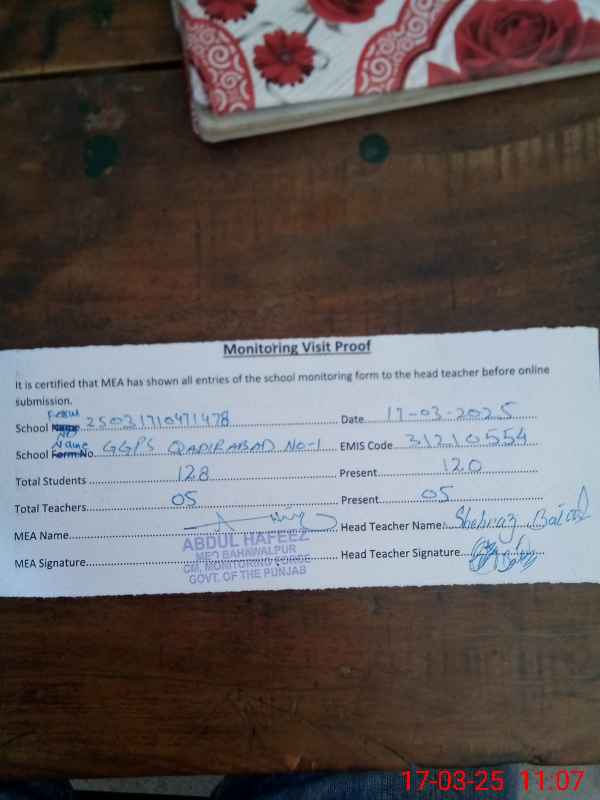 Monitoring Visit Proof
It is certified that MEA has shown all entries of the school monitoring form to the head teacher before online
submission.
School Name Form No 25031710471478 Date 17-03-2025
School Form No. Name GGPS QADIRABAD NO-1 EMIS Code 31210554
Total Students 128 Present 120
Total Teachers 05 Present 05
MEA Name Head Teacher Name: Shehnaz
MEA Signature Head Teacher Signature
ABDUL HAFEEZ
MEO BAHAWALPUR
CM, MONITORING FORCE
GOVT. OF THE PUNJAB
17-03-25 11:07